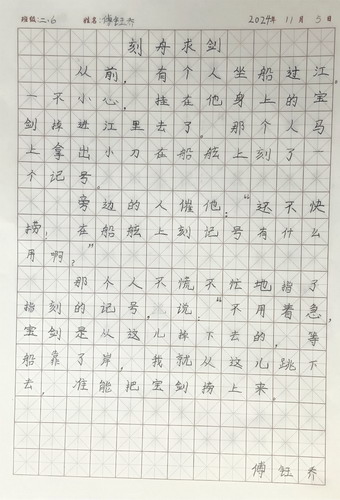 班级:二.6 姓名:傅钰乔 2024年11月5日
刻舟求剑
从前，有个人坐船过江。
一不小心，挂在他身上的宝
剑掉进江里去了。那个人马
上拿出小刀在船舷上刻了一
个记号。
旁边的人催他："还不快
捞，在船舷上刻记号有什么
用啊？"
那个人不慌不忙地指了
指刻的记号，说："不用着急，
宝剑是从这儿掉下去的，等
船靠了岸，我就从这儿跳下
去，准能把宝剑捞上来。
傅钰乔